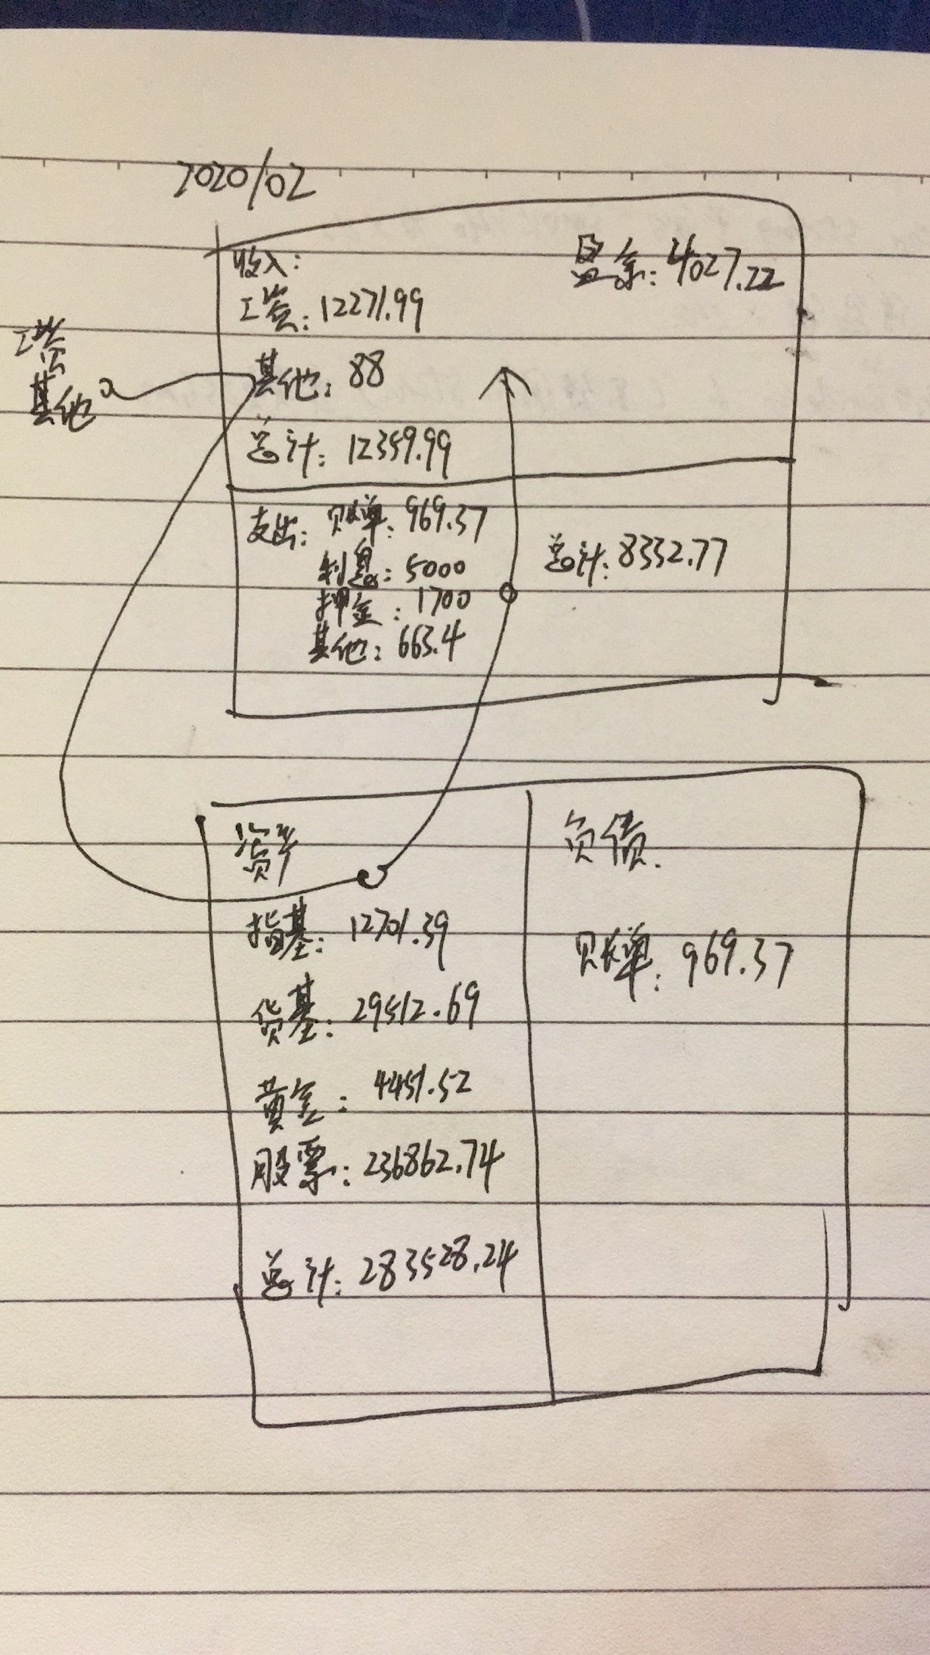 2020/02
收入:
盈余:4027.22
工资:12271.99
工资
其他
其他:88
总计:12359.99
支出: 账单:969.37
利息:5000
押金:1700
其他:663.4
总计:8332.77
资产
指基:12701.39
货基:29512.69
黄金:4451.52
股票:236862.74
总计:283528.24
负债.
账单:969.37